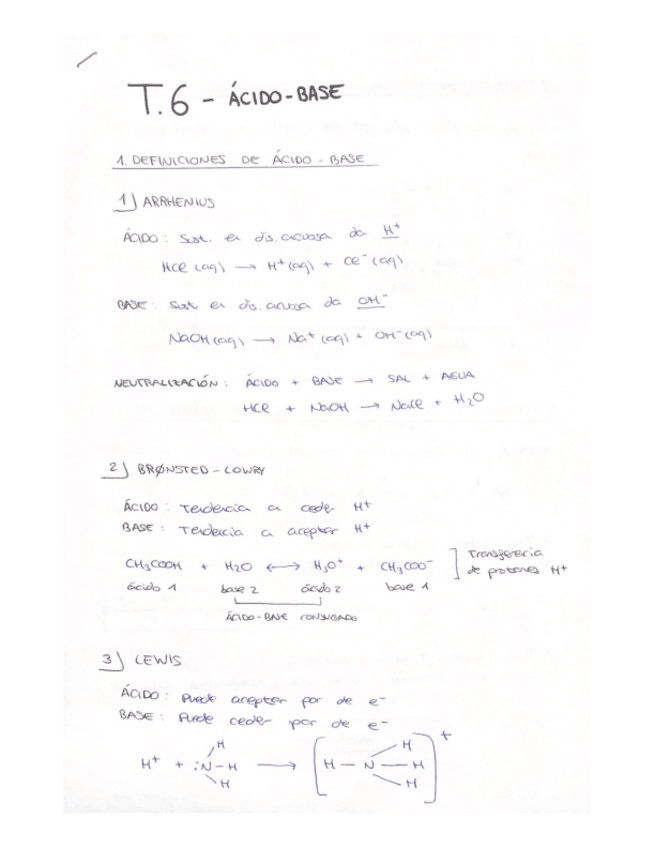 T.6 - ÁCIDO-BASE
1. DEFINICIONES DE ÁCIDO - BASE
1) ARRHENIUS
ÁCIDO: Sust. en dis. acuosa da H⁺
HCl (aq) → H⁺ (aq) + Cl⁻ (aq)
BASE: Sust en dis. acuosa da OH⁻
NaOH (aq) → Na⁺ (aq) + OH⁻ (aq)
NEUTRALIZACIÓN: ÁCIDO + BASE → SAL + AGUA
HCl + NaOH → NaCl + H₂O
2) BRØNSTED - LOWRY
ÁCIDO: Tendencia a ceder H⁺
BASE: Tendencia a aceptar H⁺
CH₃COOH + H₂O ↔ H₃O⁺ + CH₃COO⁻ ] Transferencia de protones H⁺
ácido 1 base 2 ácido 2 base 1
ÁCIDO-BASE CONJUGADO
3) LEWIS
ÁCIDO: Puede aceptar par de e⁻
BASE: Puede ceder par de e⁻
H⁺ + :N-H H H → [H-N-H H H]⁺